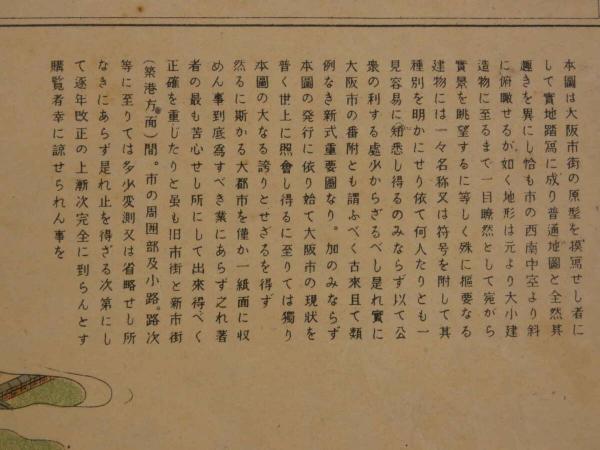 本圖は大阪市街の原型を摸寫せし者に
して實地踏寫に成り普通地圖と全然其
趣きを異にし恰も市の西南中空より斜
に俯瞰せるが如く地形は元より大小建
造物に至るまで一目瞭然として宛がら
實景を眺望するに等しく殊に樞要なる
建物には一々名称又は符号を附して其
種別を明かにせり依て何人たりとも一
見容易に知悉し得るのみならず以て公
衆の利する處少からざるべし是れ實に
大阪市の番附とも謂ふべく古來且て類
例なき新式重要圖なり。加のみならず
本圖の発行に依り始て大阪市の現狀を
普く世上に照會し得るに至りては獨り
本圖の大なる誇りとせざるを得ず
然るに斯かる大都市を僅か一紙面に収
めん事到底為すべき業にあらず之れ著
者の最も苦心せし所にして出來得べく
正確を重じたりと虽も旧市街と新市街
(築港方面)間。市の周囲部及小路。路次
等に至りては多少変測又は省略せし所
なきにあらず是れ止を得ざる次第にし
て逐年改正の上漸次完全に到らんとす
購覧者幸に諒せられん事を